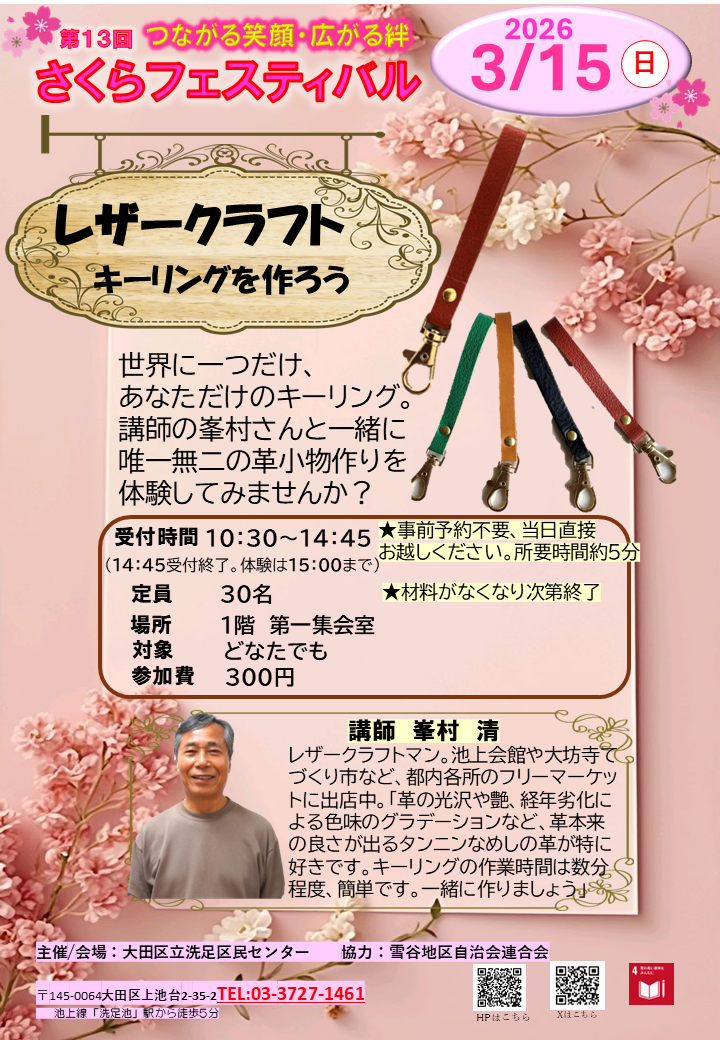 第13回 つながる笑顔・広がる絆
さくらフェスティバル
2026
3/15 日
レザークラフト
キーリングを作ろう
世界に一つだけ、
あなただけのキーリング。
講師の峯村さんと一緒に
唯一無二の革小物作りを
体験してみませんか？
受付時間 10：30～14：45
（14：45受付終了。体験は15：00まで）
★事前予約不要、当日直接
お越しください。所要時間約5分
定員 30名
★材料がなくなり次第終了
場所 1階 第一集会室
対象 どなたでも
参加費 300円
講師 峯村 清
レザークラフトマン。池上会館や大坊寺て
づくり市など、都内各所のフリーマーケッ
トに出店中。「革の光沢や艶、経年劣化に
よる色味のグラデーションなど、革本来
の良さが出るタンニンなめしの革が特に
好きです。キーリングの作業時間は数分
程度、簡単です。一緒に作りましょう」
主催/会場：大田区立洗足区民センター 協力：雪谷地区自治会連合会
〒145-0064大田区上池台2-35-2TEL:03-3727-1461
池上線「洗足池」駅から徒歩5分
HPはこちら
Xはこちら
4 質の高い教育を
みんなに